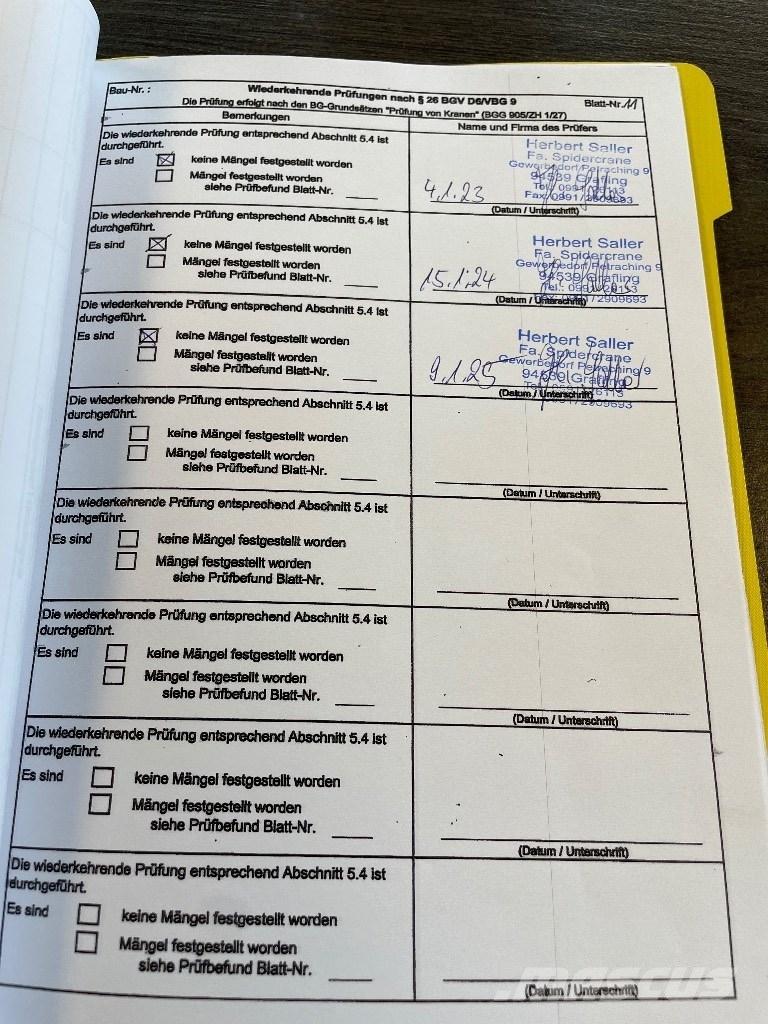 Bau-Nr. :
Wiederkehrende Prüfungen nach § 26 BGV D6/VBG 9
Blatt-Nr. 11
Die Prüfung erfolgt nach den BG-Grundsätzen "Prüfung von Kranen" (BGG 905/ZH 1/27)
Bemerkungen
Name und Firma des Prüfers
Die wiederkehrende Prüfung entsprechend Abschnitt 5.4 ist
durchgeführt.
Es sind keine Mängel festgestellt worden
Mängel festgestellt worden
siehe Prüfbefund Blatt-Nr.
Herbert Saller
Fa. Spidercrane
Gewerbedorf Petraching 9
94539 Grafling
4.1.23
(Datum / Unterschrift)
Die wiederkehrende Prüfung entsprechend Abschnitt 5.4 ist
durchgeführt.
Es sind keine Mängel festgestellt worden
Mängel festgestellt worden
siehe Prüfbefund Blatt-Nr.
Herbert Saller
Fa. Spidercrane
Gewerbedorf Petraching 9
94539 Grafling
15.1.24
(Datum / Unterschrift)
Die wiederkehrende Prüfung entsprechend Abschnitt 5.4 ist
durchgeführt.
Es sind keine Mängel festgestellt worden
Mängel festgestellt worden
siehe Prüfbefund Blatt-Nr.
Herbert Saller
Fa. Spidercrane
Gewerbedorf Petraching 9
94539 Grafling
9.1.25
(Datum / Unterschrift)
Die wiederkehrende Prüfung entsprechend Abschnitt 5.4 ist
durchgeführt.
Es sind keine Mängel festgestellt worden
Mängel festgestellt worden
siehe Prüfbefund Blatt-Nr.
(Datum / Unterschrift)
Die wiederkehrende Prüfung entsprechend Abschnitt 5.4 ist
durchgeführt.
Es sind keine Mängel festgestellt worden
Mängel festgestellt worden
siehe Prüfbefund Blatt-Nr.
(Datum / Unterschrift)
Die wiederkehrende Prüfung entsprechend Abschnitt 5.4 ist
durchgeführt.
Es sind keine Mängel festgestellt worden
Mängel festgestellt worden
siehe Prüfbefund Blatt-Nr.
(Datum / Unterschrift)
Die wiederkehrende Prüfung entsprechend Abschnitt 5.4 ist
durchgeführt.
Es sind keine Mängel festgestellt worden
Mängel festgestellt worden
siehe Prüfbefund Blatt-Nr.
(Datum / Unterschrift)
Die wiederkehrende Prüfung entsprechend Abschnitt 5.4 ist
durchgeführt.
Es sind keine Mängel festgestellt worden
Mängel festgestellt worden
siehe Prüfbefund Blatt-Nr.
(Datum / Unterschrift)
mascus